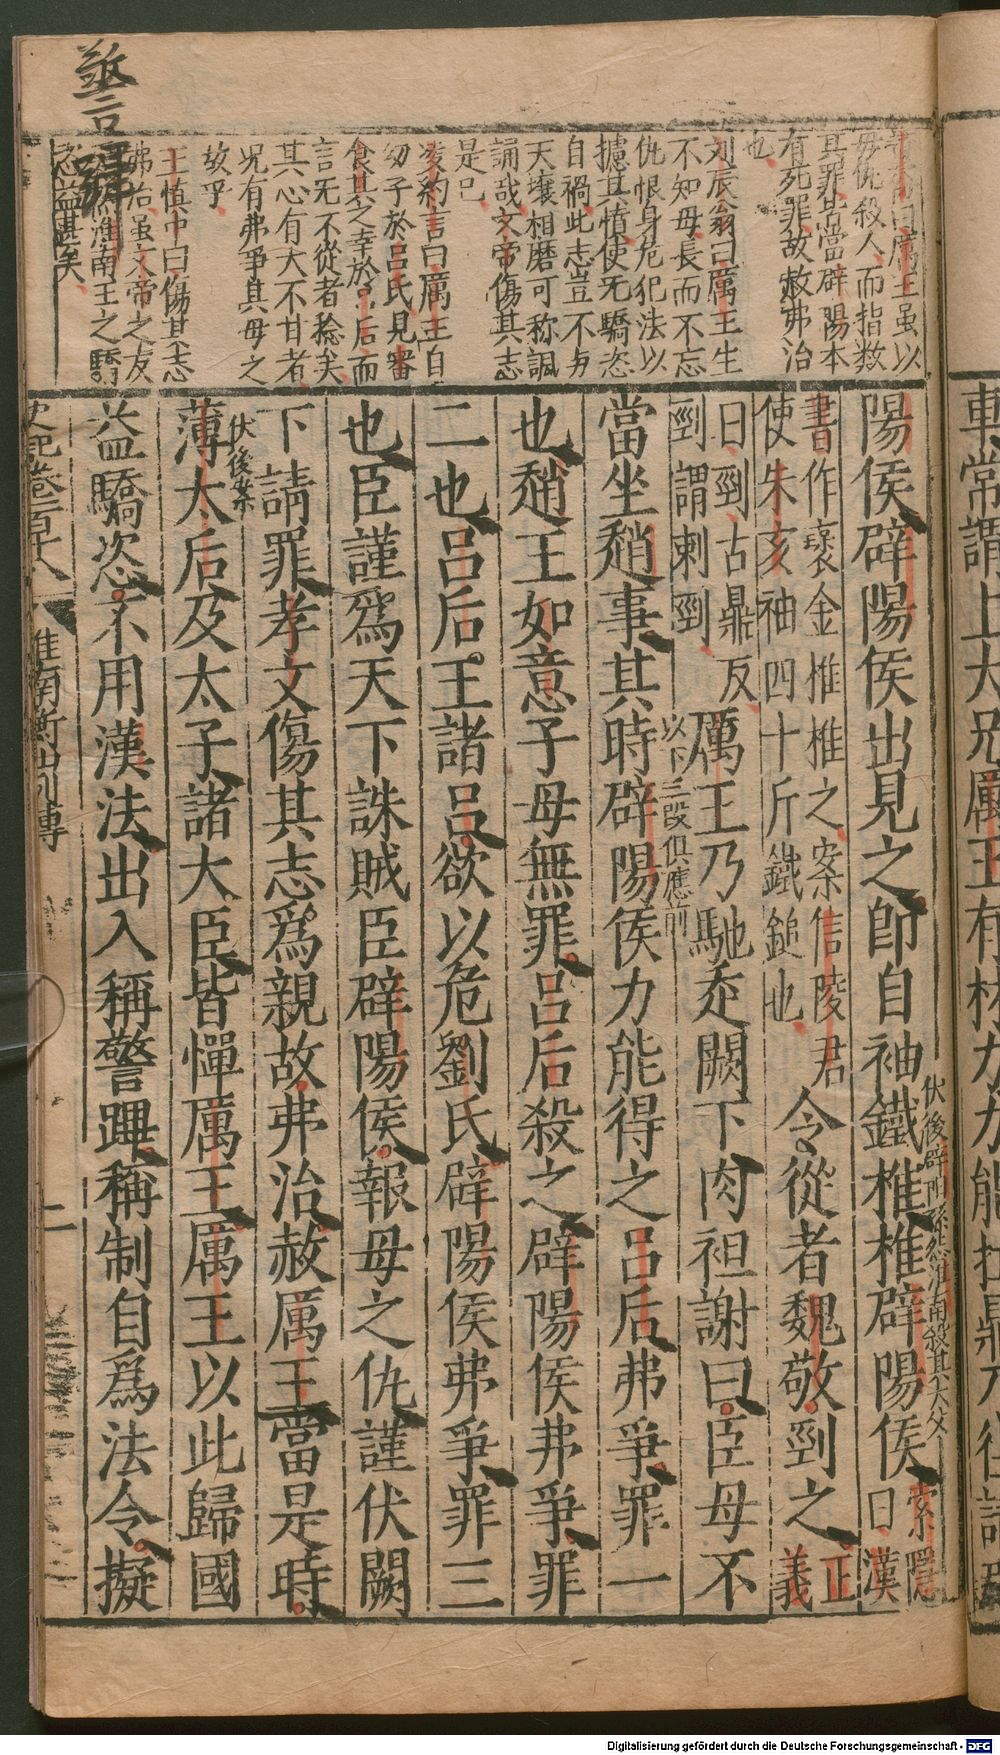 警
蹕
曰厲王虽以
母仇殺人而指数
其罪皆當辟陽本
有死罪故赦弗治
也
刘辰翁曰厲王生
不知母長而不忘
仇恨身危犯法以
攄其憤使无驕恣
自禍此志豈不与
天壤相磨可称諷
誦哉文帝傷其志
是巳
凌約言曰厲王自
幼子於吕氏見審
食其之幸於吕后而
言无不從者稔矣
其心有大不甘者
况有弗爭其母之
故乎
王慎中曰傷其志
弗治虽文帝之友
淮南王之驕
恣益甚矣
陽侯辟陽侯出見之即自袖鐵椎椎辟陽侯
索隱曰漢
伏後辟陽孫怨淮南殺其大父
書作褎金椎椎之案信陵君
使朱亥袖四十斤鐵鎚也
令從者魏敬剄之
正義
曰剄古鼎反
剄謂刺剄
厲王乃馳走闕下肉袒謝曰臣母不
以下三段俱應前
當坐趙事其時辟陽侯力能得之吕后弗爭罪一
也趙王如意子母無罪吕后殺之辟陽侯弗爭罪
二也吕后王諸吕欲以危劉氏辟陽侯弗爭罪三
也臣謹爲天下誅賊臣辟陽侯報母之仇謹伏闕
下請罪孝文傷其志爲親故弗治赦厲王當是時
伏後案
薄太后及太子諸大臣皆憚厲王厲王以此歸國
益驕恣不用漢法出入稱警蹕稱制自爲法令擬
史記卷一百十八
淮南衡山列傳
二
車常謂上大兄厲王有材力力能扛鼎乃往請
Digitalisierung gefördert durch die Deutsche Forschungsgemeinschaft - DFG